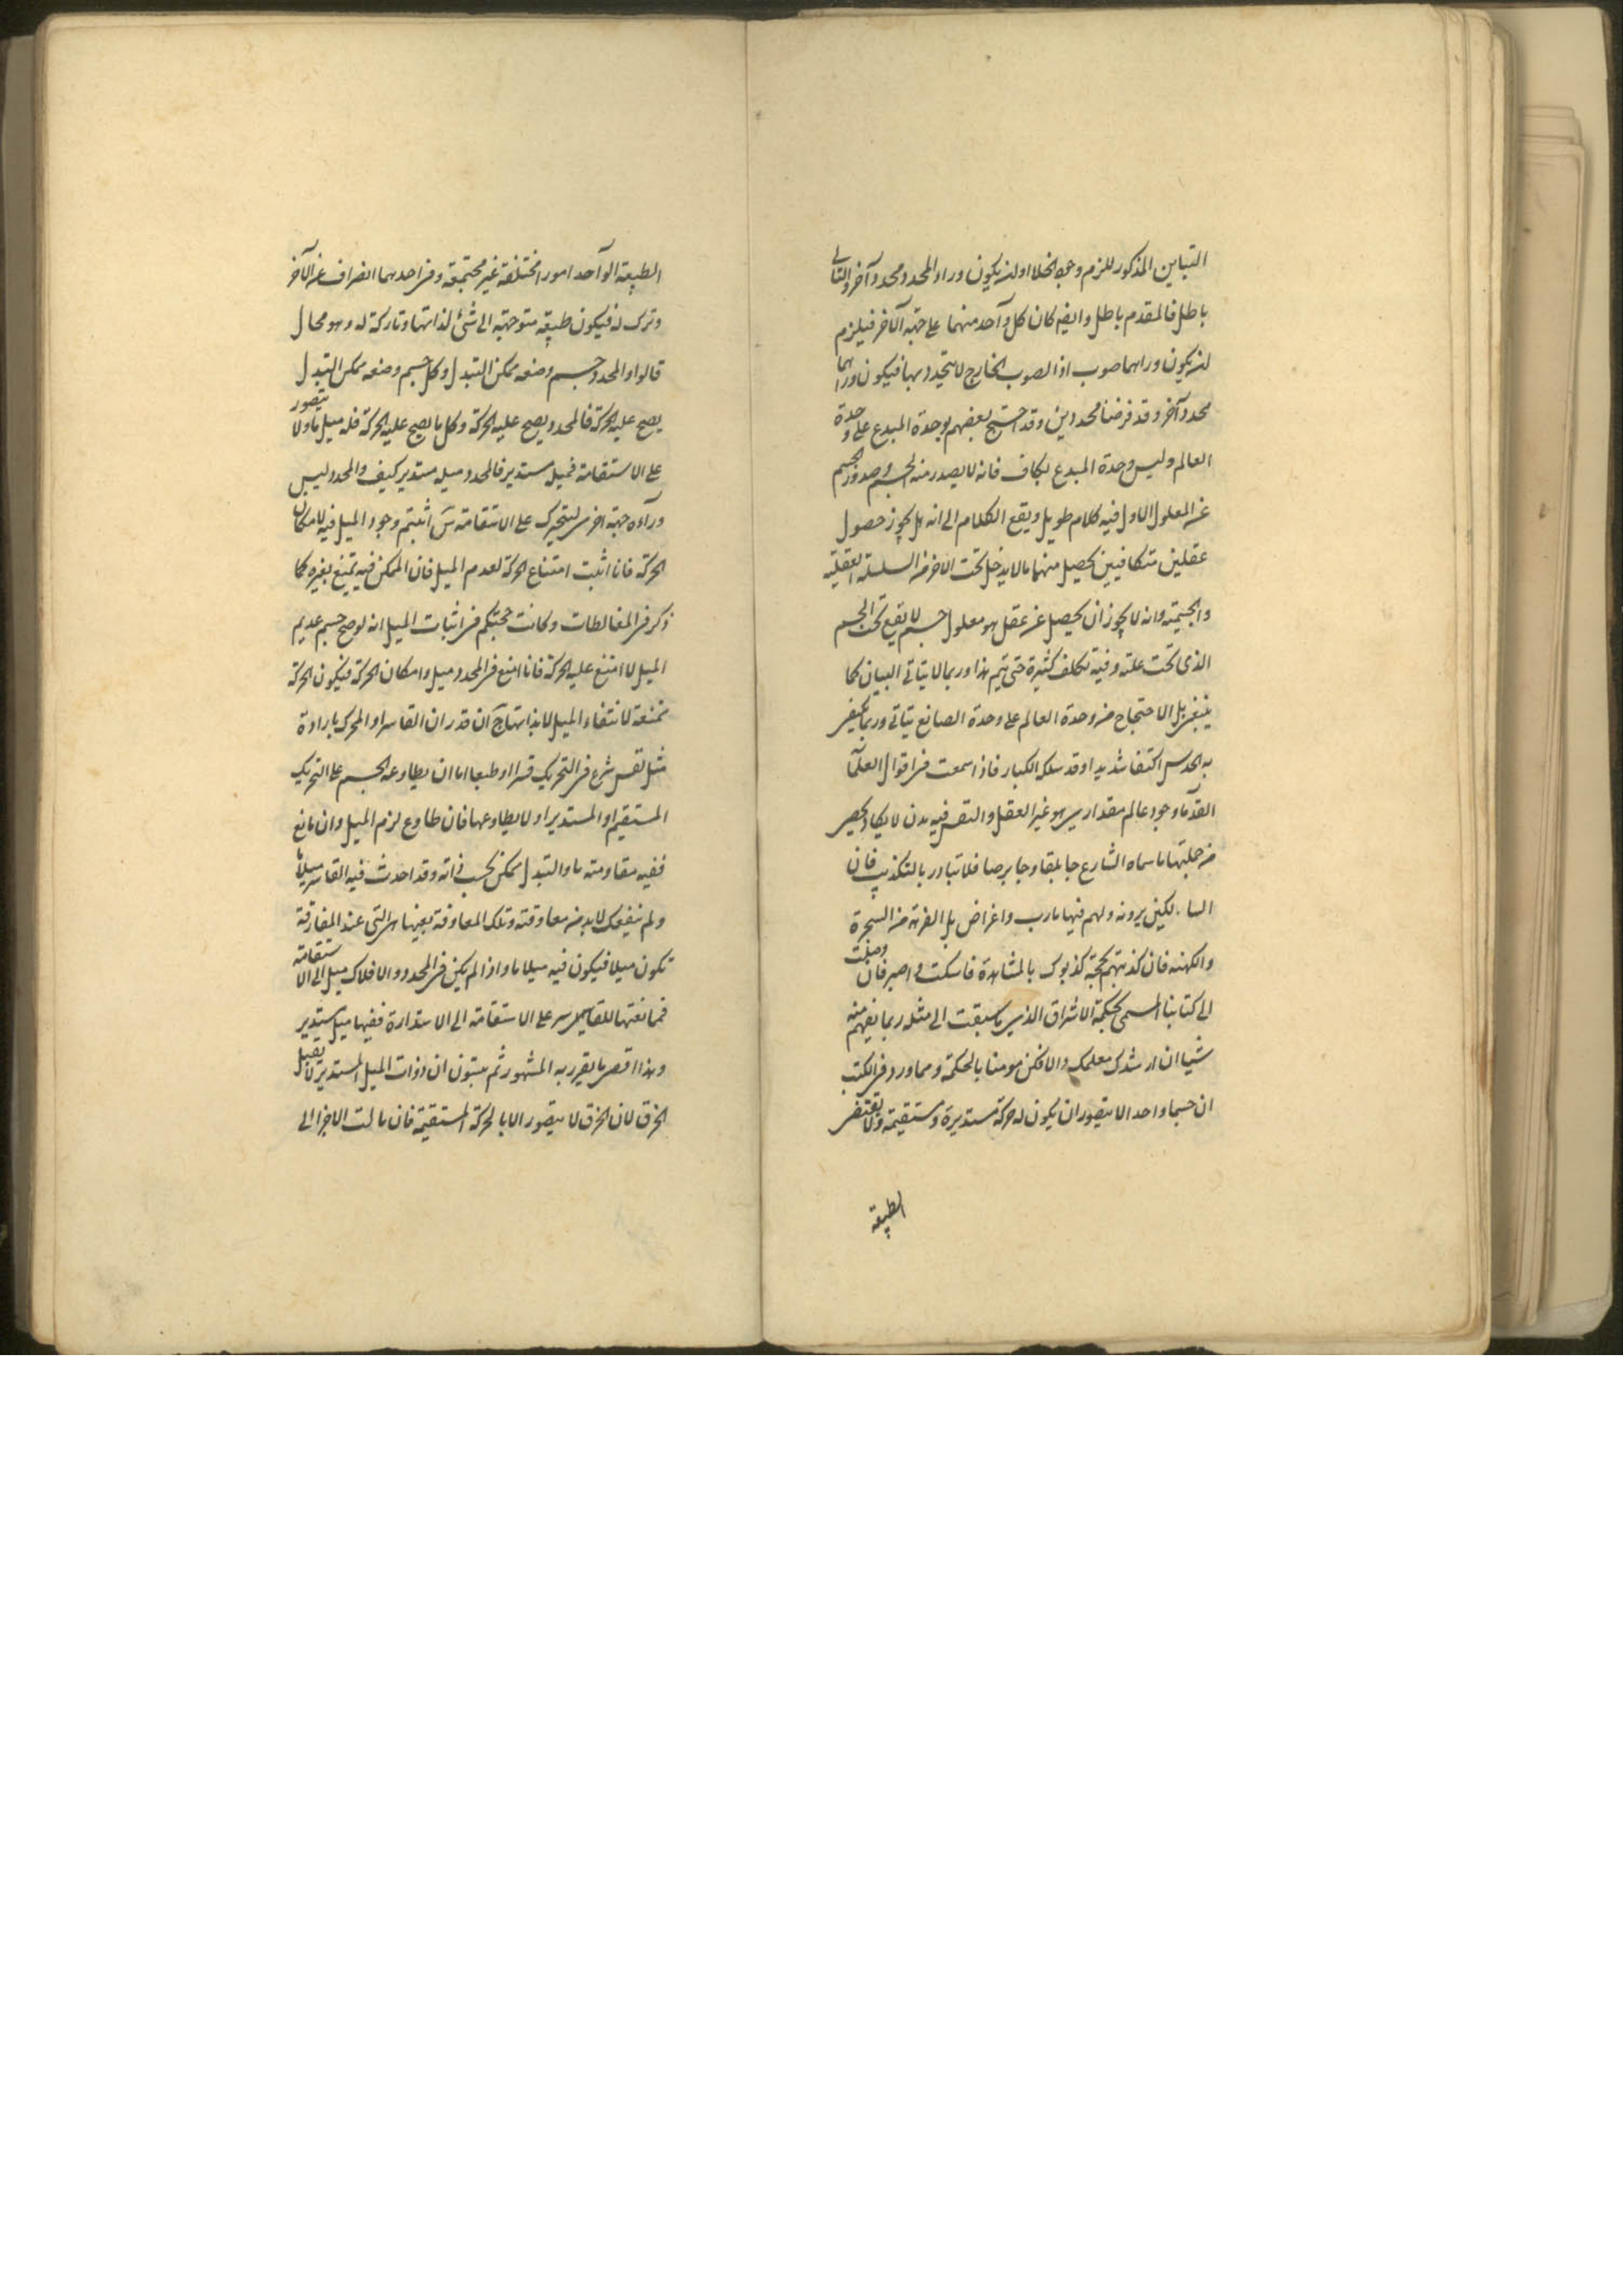 التباين المذكور للزم وجود الخلا او لن يكون وراء المحدد محدد آخر والتالى
باطل فالمقدم باطل وايضه كان كل وآحد منهما على جهة الآخر فيلزم
لن يكون وراهما صوب اذ الصوب الخارج لا يتحدد بهما فيكون وراهما
محدد آخر وقد فرضنا محددين وقد احتج بعضهم بوحدة المبدع على وحدة
العالم وليس وحدة المبدع بكاف فانه لا يصدر منه الجسم وصدور الجسم
عن المعلول الاول فيه كلام طويل ويقع الكلام الى انه هل يجوز حصول
عقلين متكافيين يحصل منهما مالا يدخل تحت الآخر من السلسلة العقلية
والجسمية وانه لا يجوز ان يحصل عن عقل هو معلول جسم لا يقع تحت الجسم
الذى تحت علته وفيه تكلف كثيرة حتى يتم هذا وربما لا يتاتى البيان كما
ينبغى بل الاحتجاج من وحدة العالم على وحدة الصانع يتاتى وربما يكتفى
به الحدس اكتفا شديدا وقد سلكه الكبار فاذا سمعت فى اقوال العلمآ
القدمآ وجود عالم مقدارى هو غير العقل والنفس فيه مدن لا يكاد يحصى
من جملتها ما سماه الشارع جابلقا وجابرصا فلا تبادر بالتكذيب فان
السالكين يرونه ولهم فيها مارب واغراض بل الفرقة من السحرة
والكهنه فان كذبتهم بحجة كذبوك بالمشاهدة فاسكت و اصبر فان وصلت
الى كتابنا المسمى بحكمة الاشراق الذى ما سبقت الى مثله ربما تفهم منه
شيا ان ارشدك معلمك والا فكن مومنا بالحكمة ومما ورد فى الكتب
ان جسما واحدا لا يتصور ان يكون له حركة مستديرة ومستقيمة ولا يقتضى
الطبيعة
الطبيعة الوآحد امورا مختلفة غير مجتمعة وفى احدهما انصراف عن الآخر
وترك له فيكون طبيعة متوجهة الى شئ لذاتها وتاركة له وهو محال
قالوا والمحدد جسم وضعه ممكن التبدل وكل جسم وضعه ممكن التبدل
يصح عليه الحركة فالمحدد يصح عليه الحركة وكل ما يصح عليه الحركة فله ميل ما ولا يتصور
على الاستقامة فميل مستدير فالمحدد ميله مستدير كيف والمحدد ليس
ورآءه جهة اخرى ليتحرك على الاستقامة س اثبتم وجود الميل فيه لامكان
الحركة فانا اثبت امتناع الحركة لعدم الميل فان الممكن فيه يمتنع بغيره كما
ذكر فى المغالطات وكانت حجتكم فى اثبات الميل انه لو صح جسم عديم
الميل لا امتنع عليه الحركة فانا امنع فى المحدد ميل وامكان الحركة فيكون الحركة
ممتنعة لانتفاء الميل لا بذاتها ج ان قدر ان القاسر او المحرك بارادة
مثل نفس شرع فى التحريك قسرا او طبعا اما ان يطاوعه الجسم على التحريك
المستقيم او المستدير او لا يطاوعها فان طاوع لزم الميل وان مانع
ففيه مقاومته ما والتبدل ممكن بحسب ذاته وقد احدث فيه القاسر ميلا ما
ولم ينفعك لا بد من معاوقته وتلك المعاوقة بعينها هى التى عند المفارقة
تكون ميلا فيكون فيه ميلا ما واذا لم يكن فى المحدد والافلاك ميل الى الاستقامته
فمانعتها للقاسر على الاستقامته الى الاستدارة ففيها ميل مستدير
وهذا اقصى ما يقرر به المشهور ثم يبتنون ان ذوات الميل المستدير لا يقبل
الخرق لان الخرق لا يتصور الا بالحركة المستقيمة فان مالت الاجزا الى